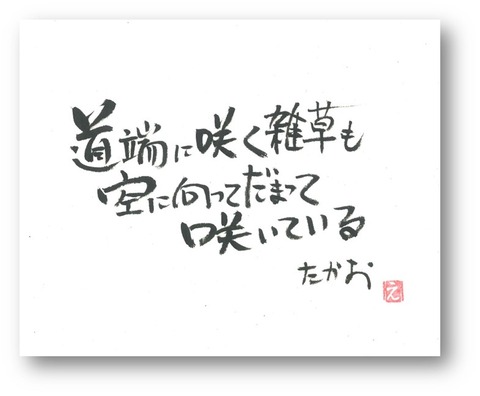 道端に咲く雑草も
空に向ってだまって
咲いている
たかお
え